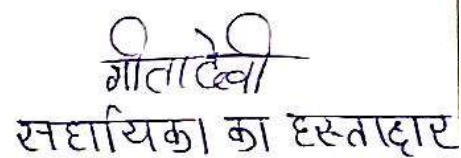 गीता देवी
सहायिका का हस्ताक्षर